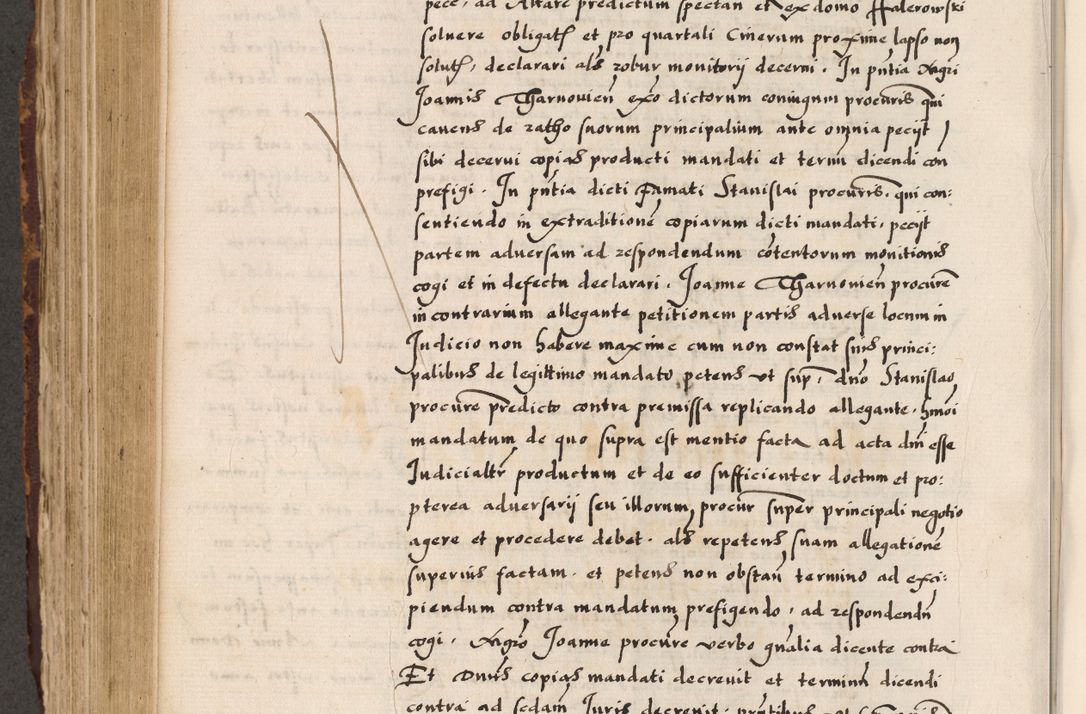 pece, ad Altare predictum spectan et ex domo Halerowski
soluere obligat et pro quartali Cinerum proxime lapso non
solut, declarari als robur monitorij decerni. In pntia Mgri
Joannis Tharnouien exo dictorum coniugum procuris qui
cauens de ratho suorum principalium ante omnia pecijt
sibi decerni copias producti mandati et termi dicendi con
prefigi. In pntia dicti Famati Stanislai procuris. qui con:
sentiendo in extraditione copiarum dicti mandati, pecijt
partem aduersam ad respondendum cotentorum monitionis
cogi et in defectu declarari. Joanne Tharnouien procure
in contrarium allegante petitionem partis aduerse locum in
Judicio non habere maxime cum non constat suis princi:
palibus de legittimo mandato petens vt sup, dno Stanislao
procure predicto contra premissa replicando allegante, hmoi
mandatum de quo supra est mentio facta ad acta dni esse
Judicialtr productum et de eo sufficienter doctum et pro:
pterea aduersarij seu illorum procur super principali negotio
agere et procedere debet. als repetens suam allegatione
superius factam. et petens non obstan termino ad exci:
piendum contra mandatum prefigendo, ad respondendu
cogi. Mgro Joanne procure verbo gnalia dicente contra
Et Dnus copias mandati decreuit et terminu dicendi
contra ad scdam Juris decreuit. pntibus